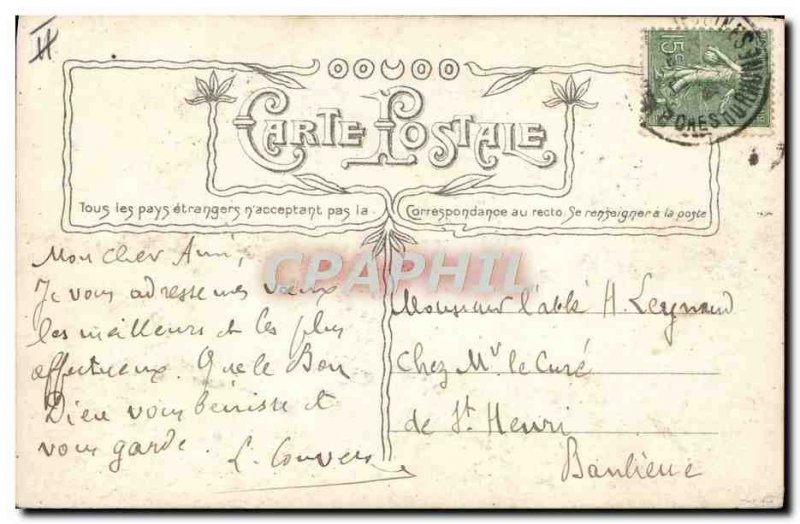 H
CARTE POSTALE
15c
BCHES DU RHONE
Tous les pays étrangers n'acceptant pas la Correspondance au recto. Se renseigner à la poste
CPAPHIL
Mon cher Ami,
Je vous adresse mes vœux
les meilleurs et les plus
affectueux. Que le Bon
Dieu vous bénisse et
vous garde.
Monsieur l'abbé H. Leynaud
Chez Mr le Curé
de St Henri
Banlieue